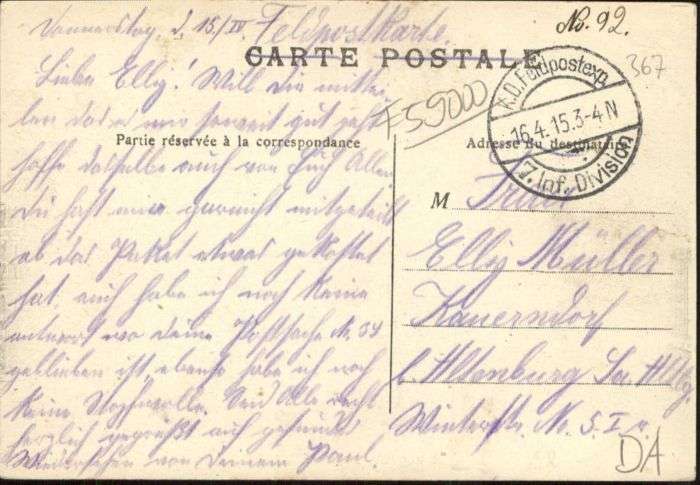 No. 92.
Donnerstag, d. 15/IV Feldpostkarte.
CARTE POSTALE
K.D. Feldpostexp.
16.4.15.3-4N
7. Inf. Division
367
F 59000
Partie réservée à la correspondance
Adresse du destinataire
Liebe Elly! Will dir mittei-
len daß es mir soweit gut geht
hoffe dasselbe auch von Euch Allen.
Du hast mir mitgeteilt
ob das Paket etwas gekostet
hat, auch habe ich noch keine
antwort wo deine Postsache No. 34
geblieben ist, ebenso habe ich noch
keine Stopfwolle. Seid Alle recht
herzlich gegrüßt auf gesundes
Wiedersehen von Deinem Paul.
M Frau
Elly Müller
Kauerndorf
b. Altenburg Sa. Altbg
Winterstr. No. 5. I r.
DA